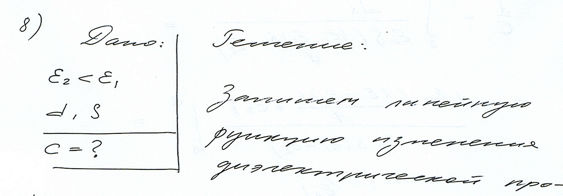 8)
Дано:
ε₂ < ε₁
d, S
C = ?
Решение:
Запишем линейную
функцию изменения
диэлектрической про-